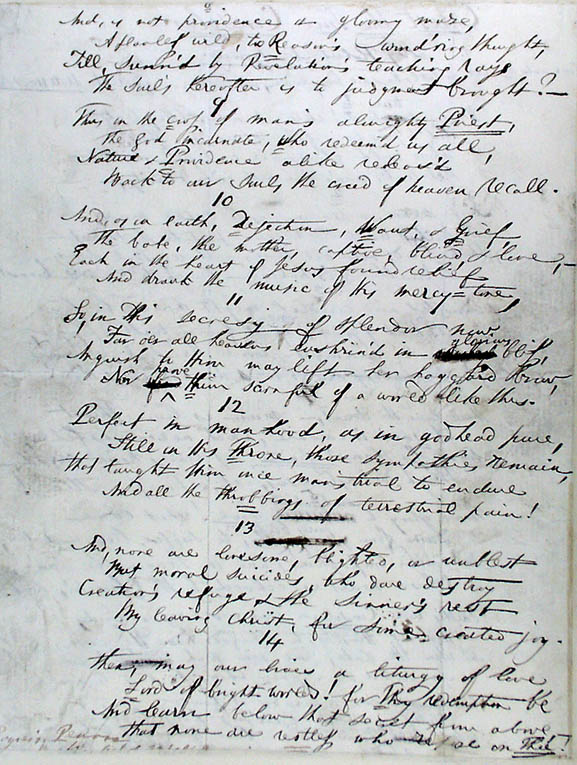 8
And, is not providence a gloomy maze,
A fearful wild, to Reason's wand'ring thought,
Till, sunn'd by Revelation's teaching rays
The soul's hereafter is to judgment brought? —
9
Thus in the cross of man's almighty Priest,
The God incarnate, who redeem'd us all,
Nature & Providence alike
Back to our souls the creed of heaven recall.
10
And, as on earth, Dejection, Want, & Grief
The babe, the mother, captive, blind & lone, —
Each in the heart of Jesus found relief
And drank the music of His mercy-tone,
11
So, in This secresy of splendor now
Far o'er all heavens enshrin'd in glorious bliss,
Anguish to Him may lift her haggard Brow,
Nor have Him scornful of a world like this.
12
Perfect in manhood, as in godhead pure,
Still in His Throne, those sympathies remain,
That taught Him once man's trial to endure
And all the throbbings of terrestrial pain!
13
And, none are lonesome, blighted, or unblest
But moral suicides, who dare destroy
Creation's refuge & the Sinner's rest
By leaving Christ, for some created joy.
14
Then, may our lives a liturgy of love
Lord of bright worlds! for Thy redemption be
And learn below that secret from above
That none are restless who on Thee!